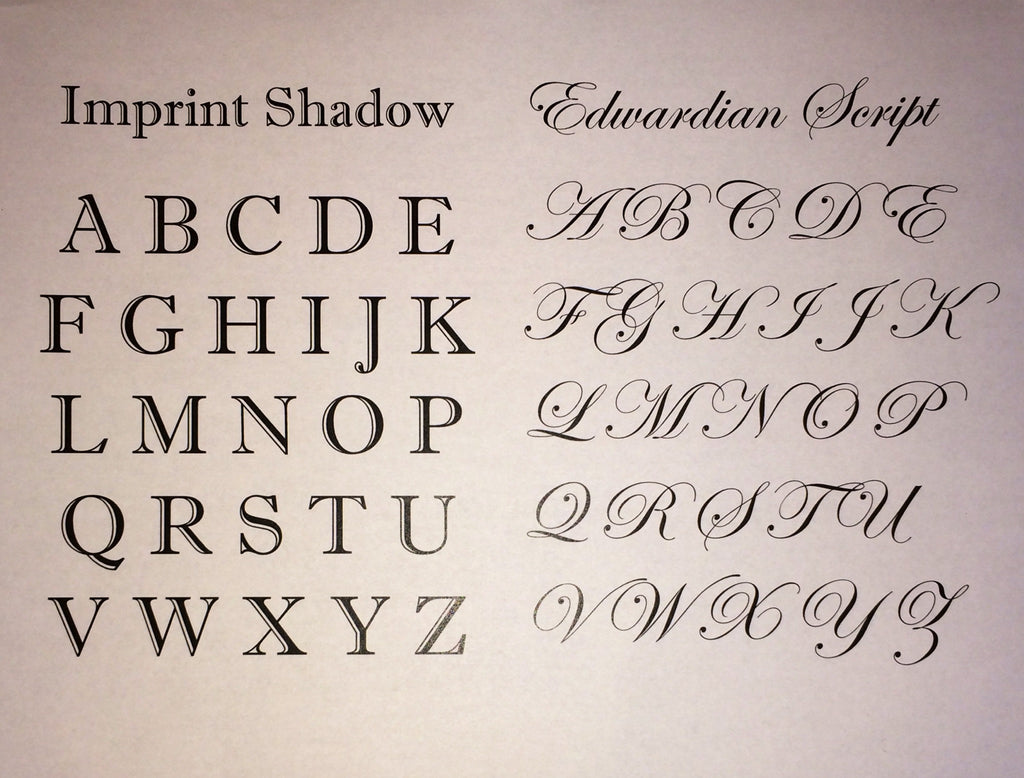 Imprint Shadow
A B C D E
F G H I J K
L M N O P
Q R S T U
V W X Y Z
Edwardian Script
A B C D E
F G H I J K
L M N O P
Q R S T U
V W X Y Z